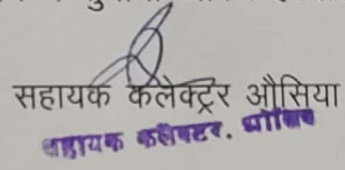 सहायक कलेक्ट्रर औसिया
सहायक कलेक्टर, औसिया